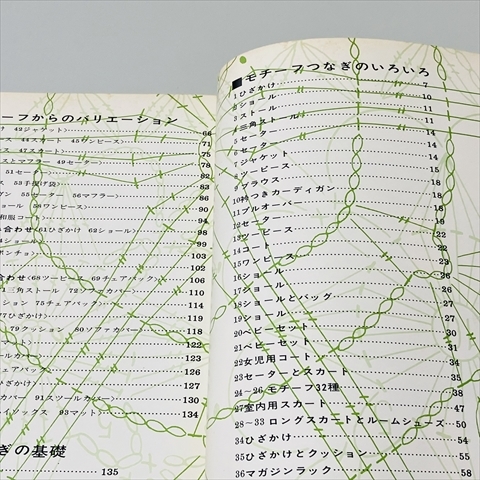 ーフからのバリエーション
け 42ジャケット〉 66
44スカート 45ワンピース〉 71
75
ストマフラー 49セーター〉 78
51セーター〉 81
ス 53手提げ袋〉 84
ガン 55セーター 56マフラー〉 86
ショール 59ワンピース〉 90
和服コート〉 94
わせ 〈61ひざかけ 63ショール〉 98
64ショール
オンチョ〉 100
102
合わせ 〈68ツーピース 69チェアバック〉 106
71三角ストール 72ソファカバー〉 110
ション 75チェアバック〉 114
77ひざかけ〉 116
79クッション 80ソファカバー〉 118
122
ールカバー〉 123
チェアバック
ざかけ〉 127
カバー 91スツールカバー〉 133
イソックス 93マット〉 134
ぎの基礎
135
■モチーフつなぎのいろいろ
1ひざかけ 7
2ショール 10
3ストール 11
4三角ストール 11
5セーター 14
6セーター 14
7ジャケット 14
8ツーピース 14
9ブラウス 15
10衿つきカーディガン 18
11プルオーバー 18
12セーター 18
13ツーピース 19
14コート 22
15ワンピース 23
16ショール 26
17ショール 26
18ショールとバッグ
19ショール
20ベビーセット 30
21ベビーセット 31
22女児用コート 34
23セーターとスカート 35
24〜26 モチーフ32種 38
27室内用スカート 47
28〜33 ロングスカートとルームシューズ 50
34ひざかけ 54
35ひざかけとクッション 55
36マガジンラック 58